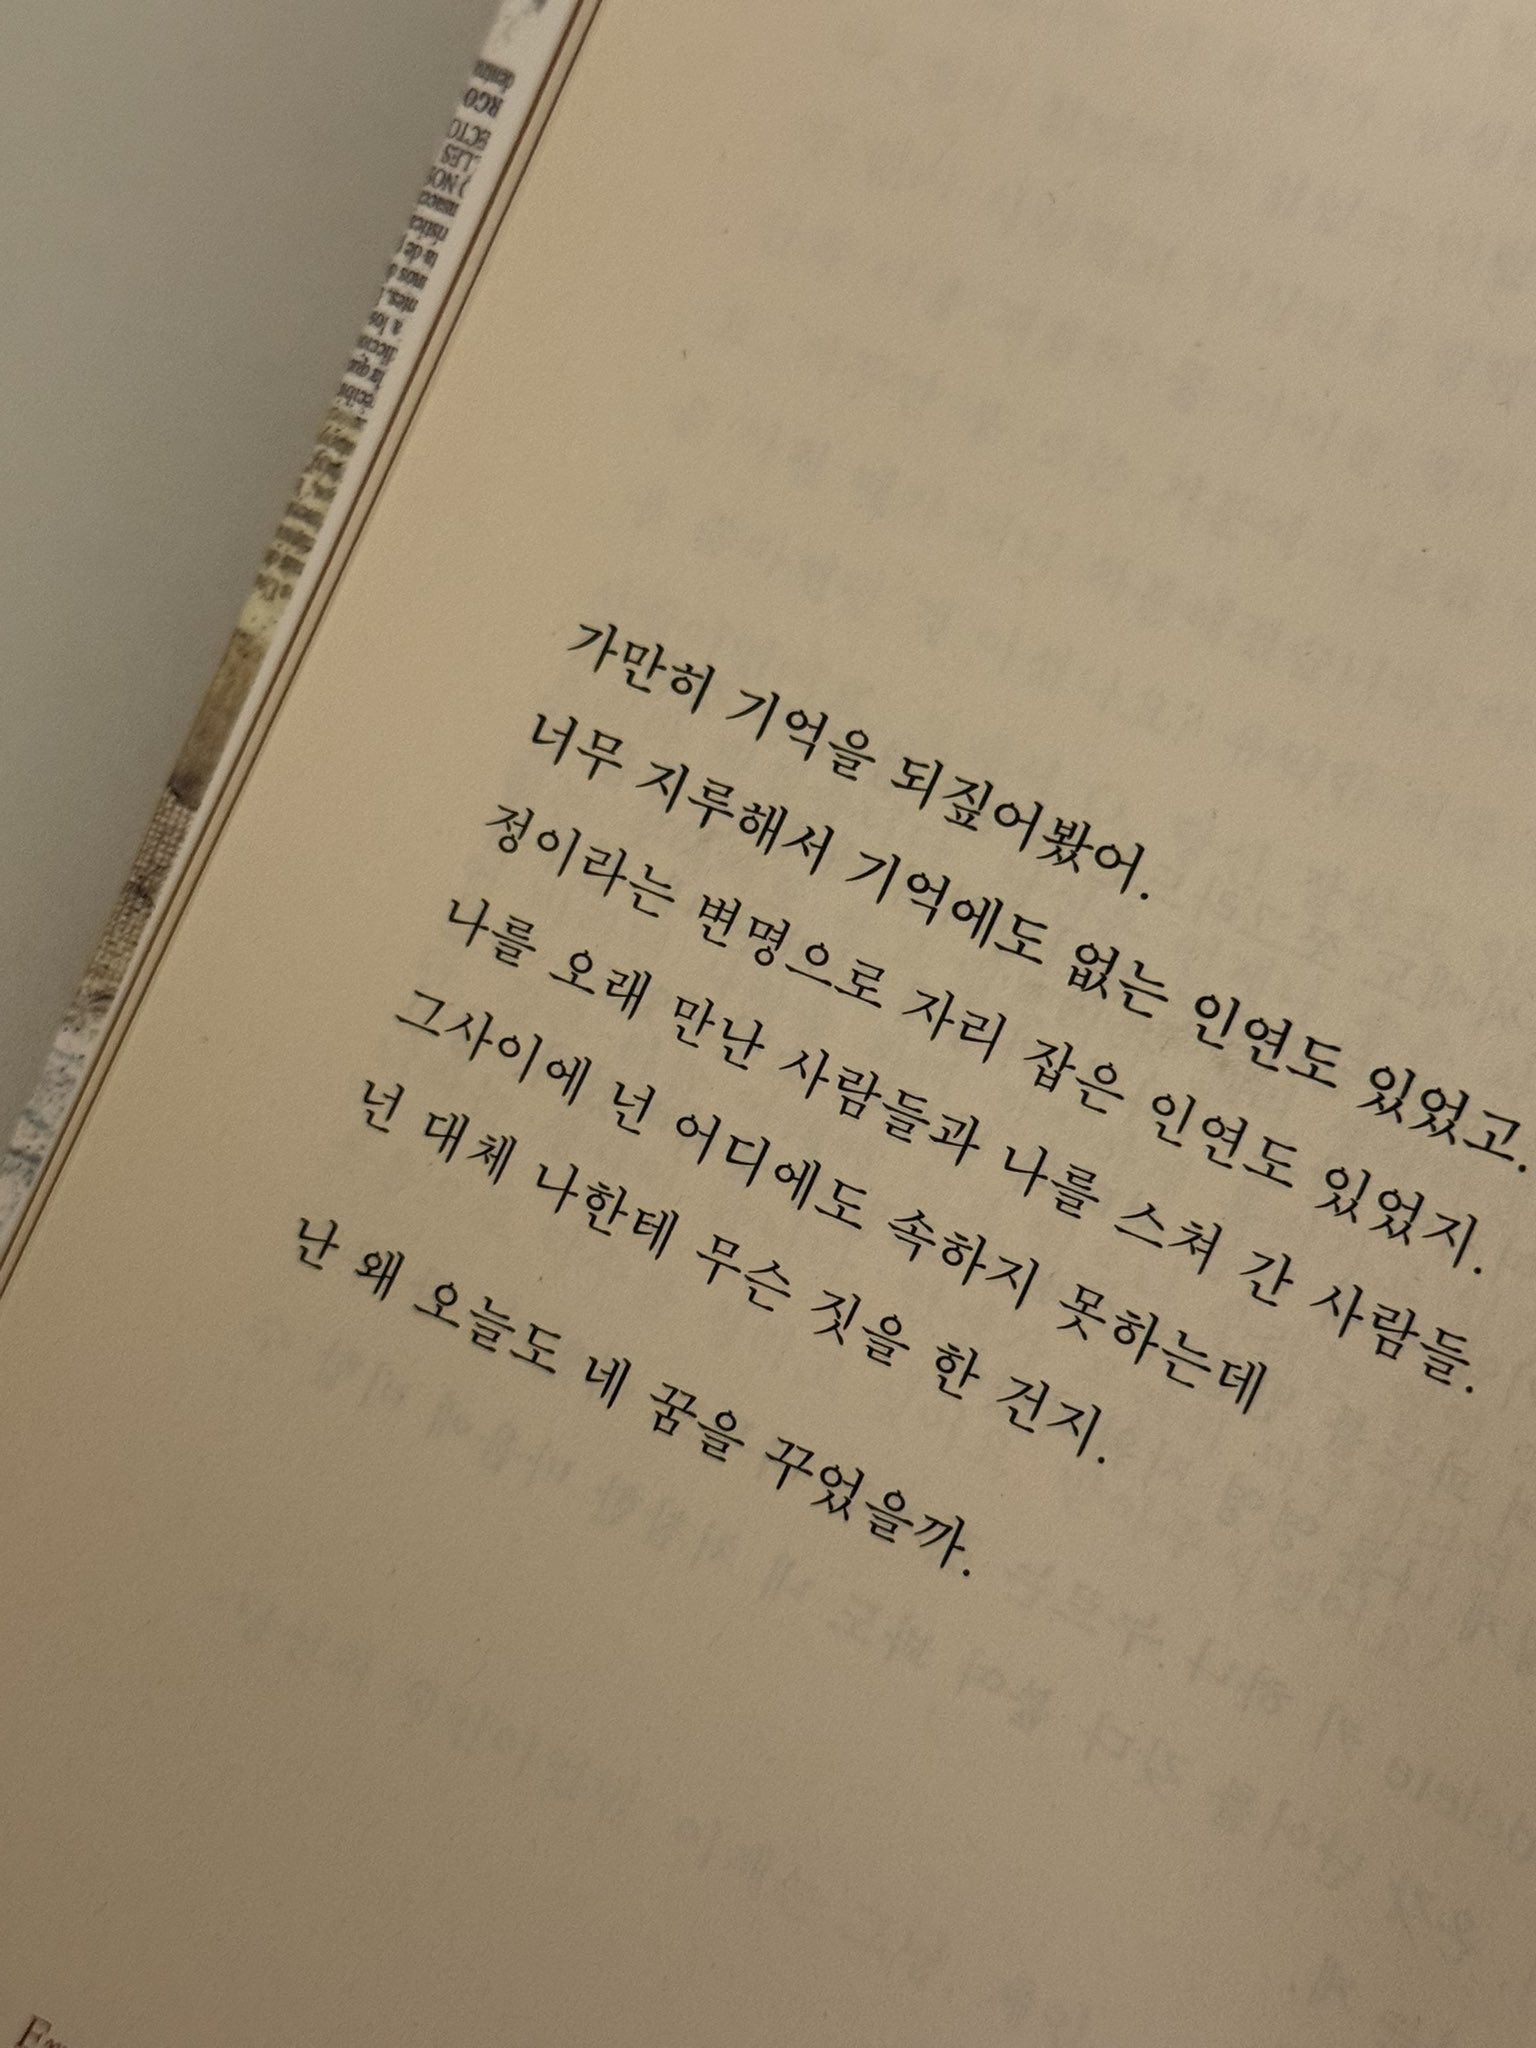 가만히 기억을 되짚어봤어.
너무 지루해서 기억에도 없는 인연도 있었고.
정이라는 변명으로 자리 잡은 인연도 있었지.
나를 오래 만난 사람들과 나를 스쳐 간 사람들.
그사이에 넌 어디에도 속하지 못하는데
넌 대체 나한테 무슨 짓을 한 건지.
난 왜 오늘도 네 꿈을 꾸었을까.